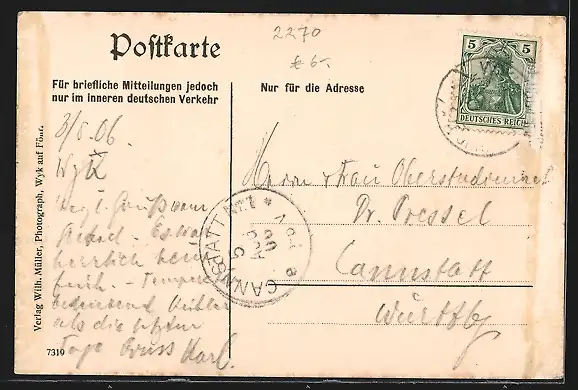 2270
€ 6-
Postkarte
Für briefliche Mitteilungen jedoch
nur im inneren deutschen Verkehr
Nur für die Adresse
5 5
DEUTSCHES REICH
3/8.06.
Wyk
Herrn & Frau Oberstudienrat
Dr. Pressel
Cannstatt
Württbg
CANNSTATT Nr. 1
Gruß vom
herrlich
früh. - Temperatur
bedeutend kühler
als die letzten
Tage Gruss Karl.
Verlag Wilh. Müller, Photograph, Wyk auf Föhr.
7319